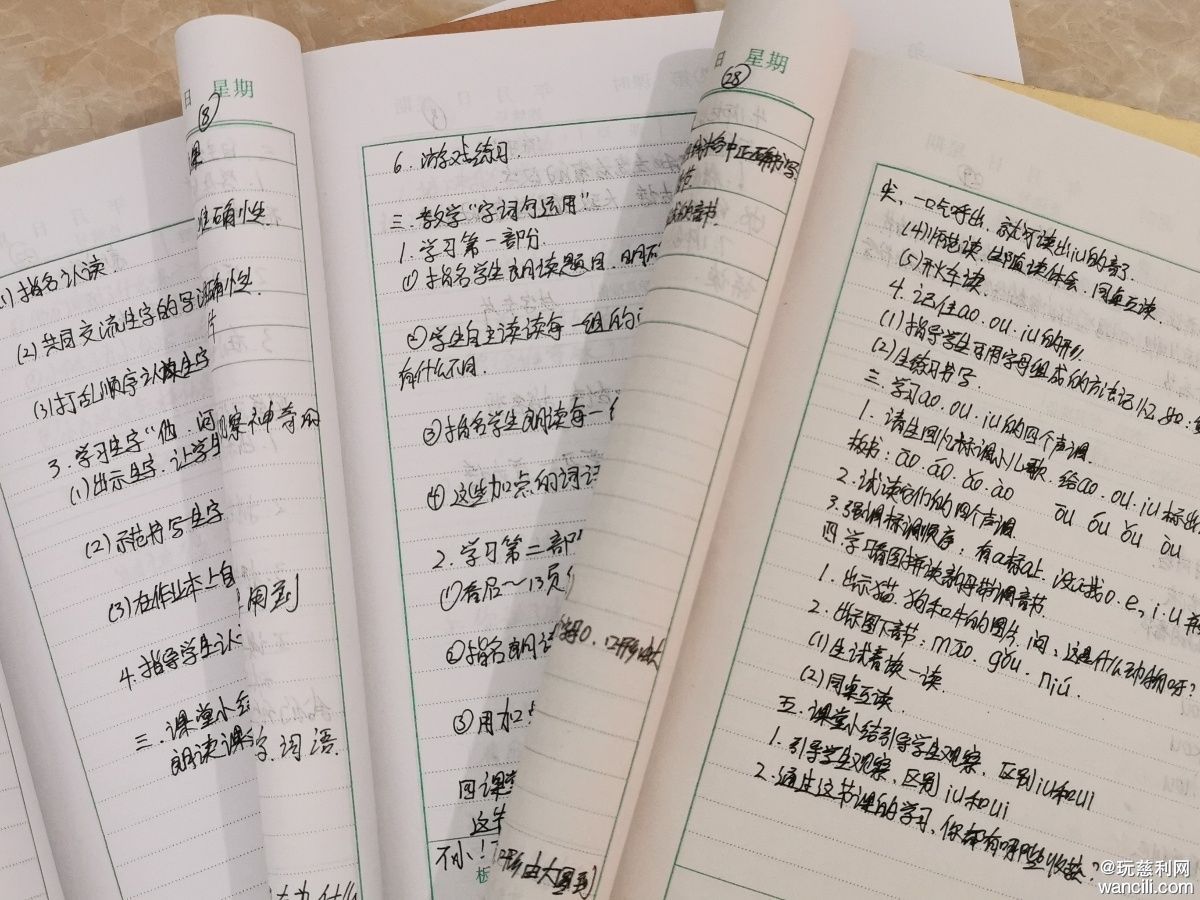 日 星期
⑧
课
准确性.
(1)指名认读.
(2)共同交流生字的写
准确性.
片
(3)打乱顺序认读生字
3.学习生字“他、河
察神奇的
(1)出示生字.让学生
(2)示范书写生字
(3)在作业本上自
用到
4.指导学生认
三.课堂小结
朗读课
字、词语.
为什么
6.游戏练习.
三.教学“字词句运用”
1.学习第一部分.
①指名学生朗读题目.明确
②学生自主读读每一组的
有什么不同.
③指名学生朗读每一
④这些加点的词语
2.学习第二部
①看后~13页
②指名朗读
③用加
四课堂
这节
不小!
板
日 星期
28
格中正确书写
节
的音节.
o.口形由大
口形由大圆到
尖,一口气呼出.就可读出iu的音了.
(4)师范读.生随读体会.同桌互读.
(5)开火车读.
4.记住ao.ou.iu的形.
(1)指导学生可用字母组成的方法记忆.如:
(2)生练习书写.
三.学习ao.ou.iu的四个声调.
1.请生回忆标调小儿歌.给ao.ou.iu标出
板书:āo.áo.ǎo.ào ōu óu ǒu òu
2.试读它们的四个声调.
3.强调标调顺序:有a标a上.没a找o.e,i.u并
四.学习看图拼读韵母带调音节.
1.出示猫.狗和牛的图片.问:这是什么动物呀?
2.出示图下音节:māo.gǒu.niú.
(1)生试着读一读.
(2)同桌互读.
五.课堂小结引导学生观察.区别iu和ui
1.引导学生观察.区别iu和ui
2.通过这节课的学习.你都有哪些收获?
@玩慈利网
wancili.com